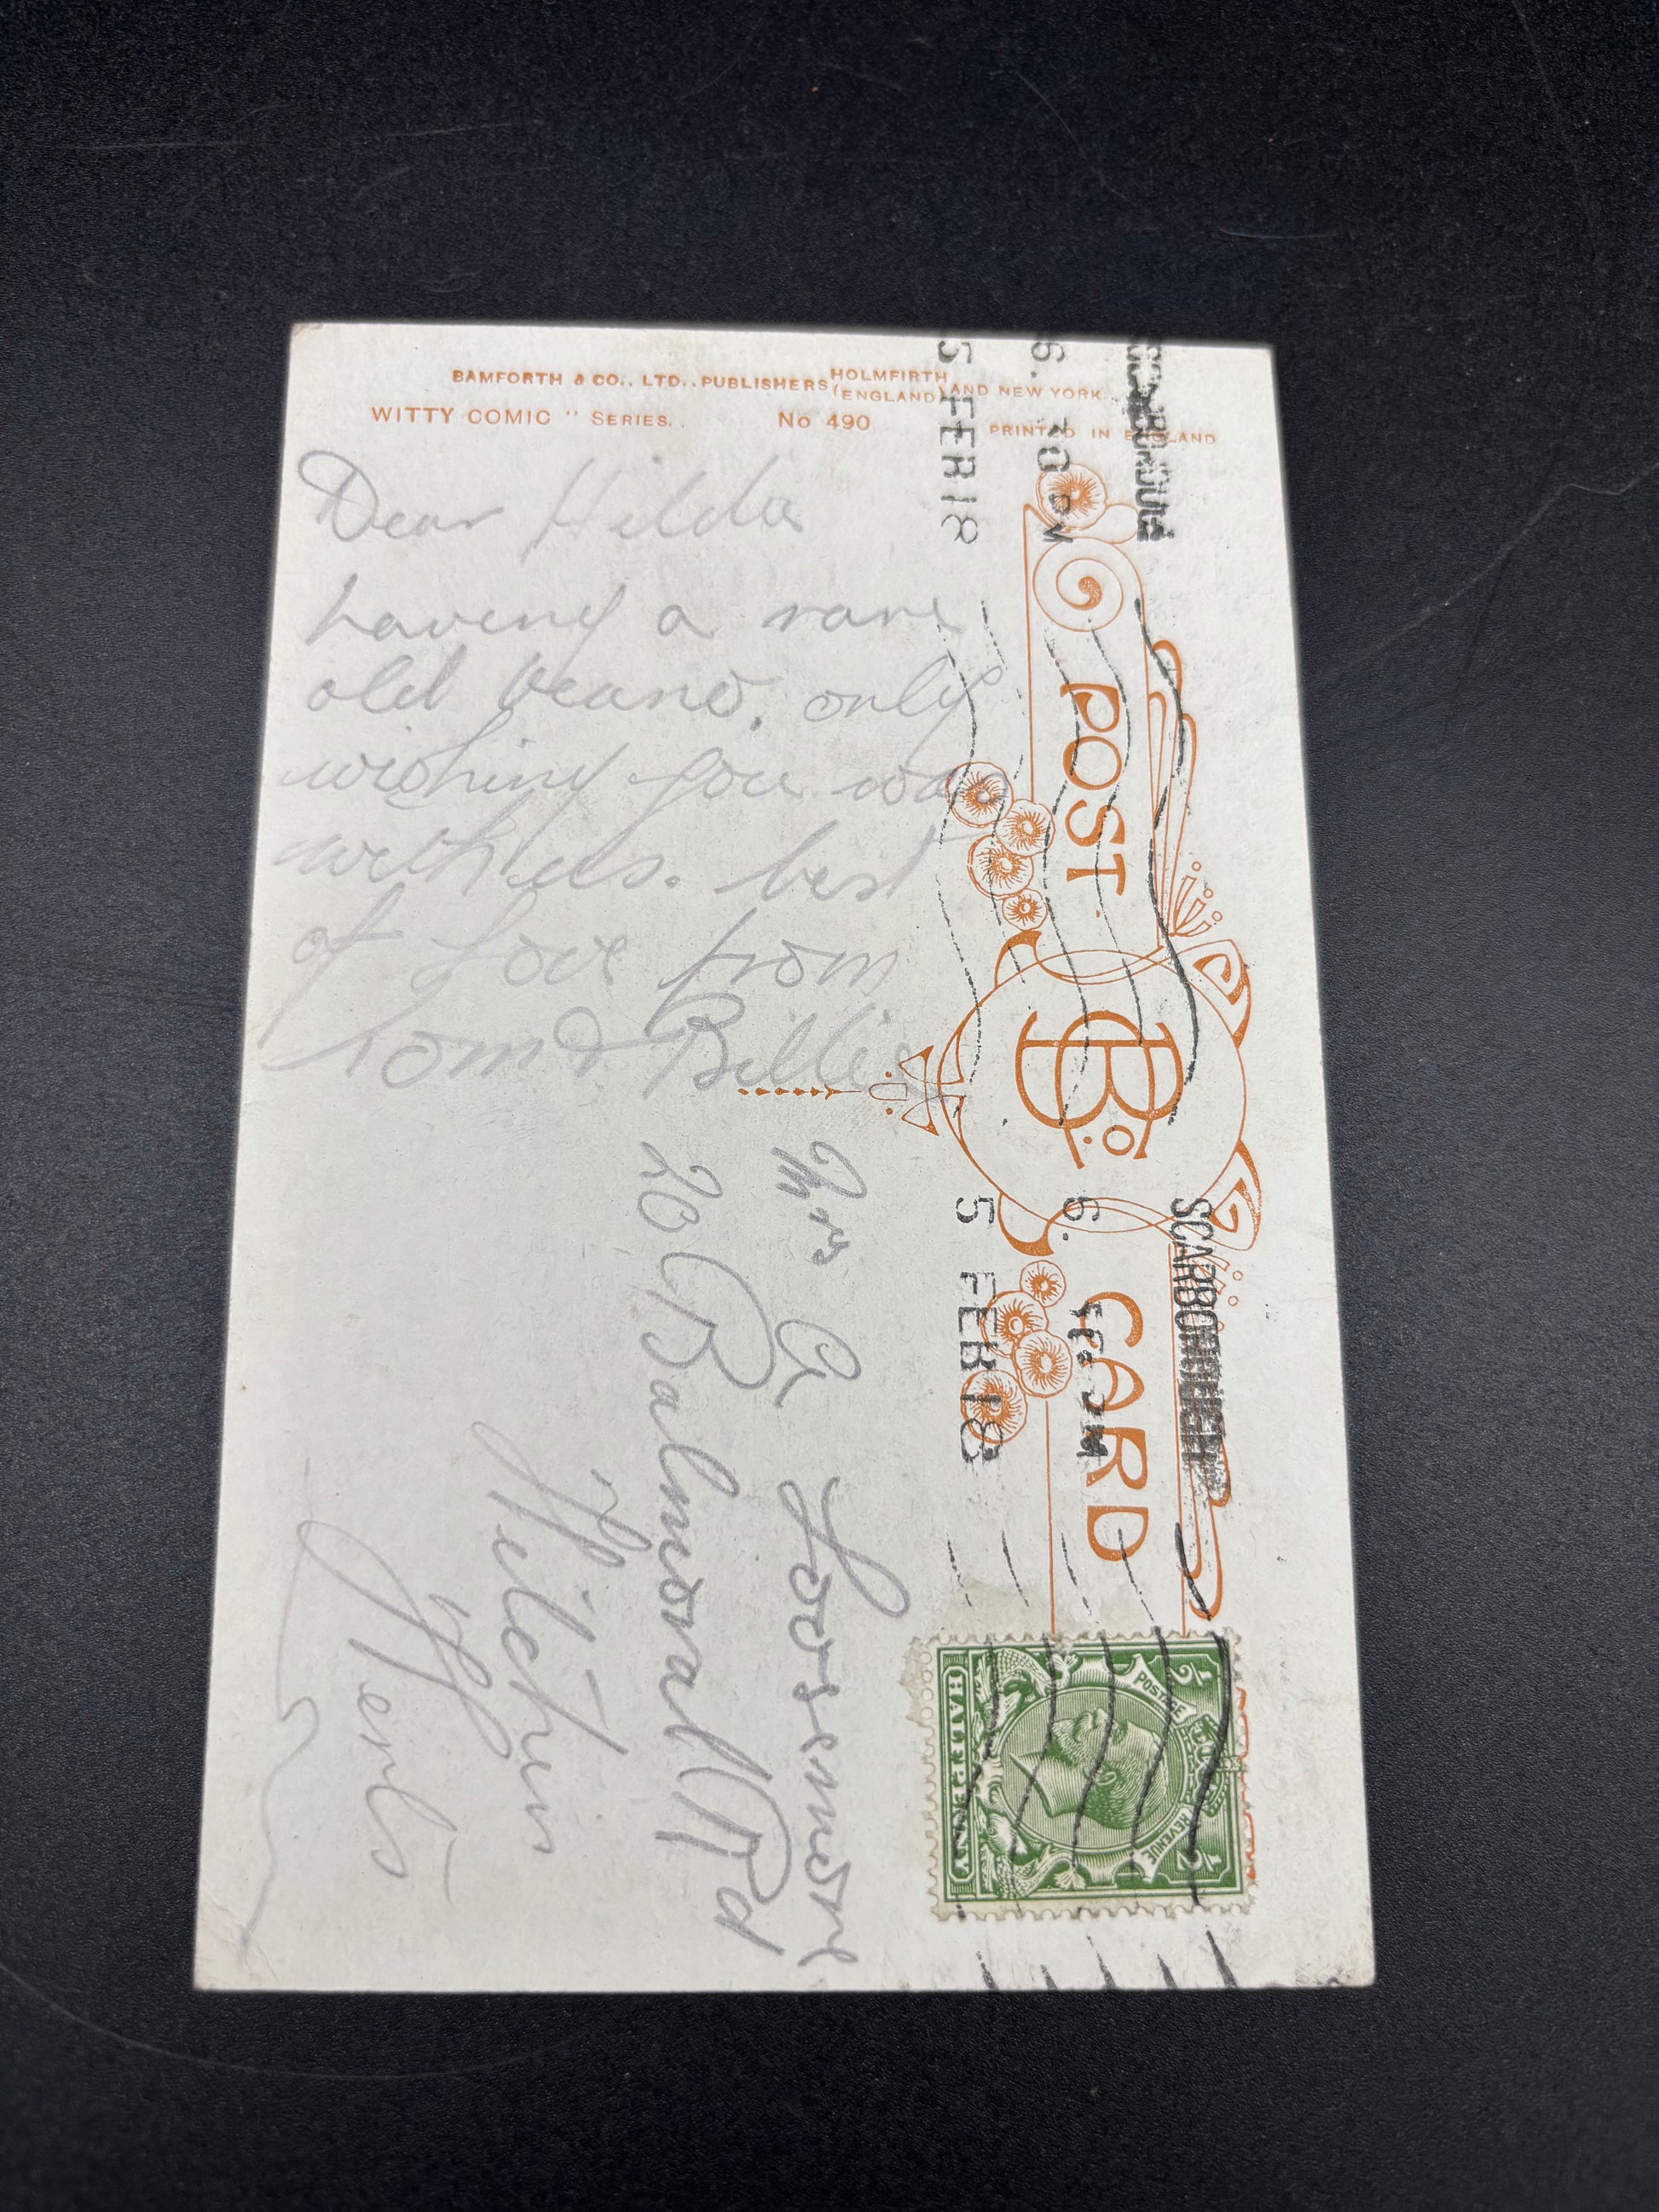 BAMFORTH & CO., LTD., PUBLISHERS (HOLMFIRTH ENGLAND) AND NEW YORK
WITTY COMIC " SERIES. No 490
PRINTED IN ENGLAND
POST CARD
B & Co
SCARBOROUGH
6. 10 PM
5 FEB 18
SCARBOROUGH
6. PM
5 FEB 18
½ POSTAGE REVENUE ½
HALFPENNY
Dear Hilda
having a rare
old beano, only
wishing you was
with us. best
of love from
Tom & Billie
Mrs G Loosemore
20 Balmoral Rd
Hitchin
Herts